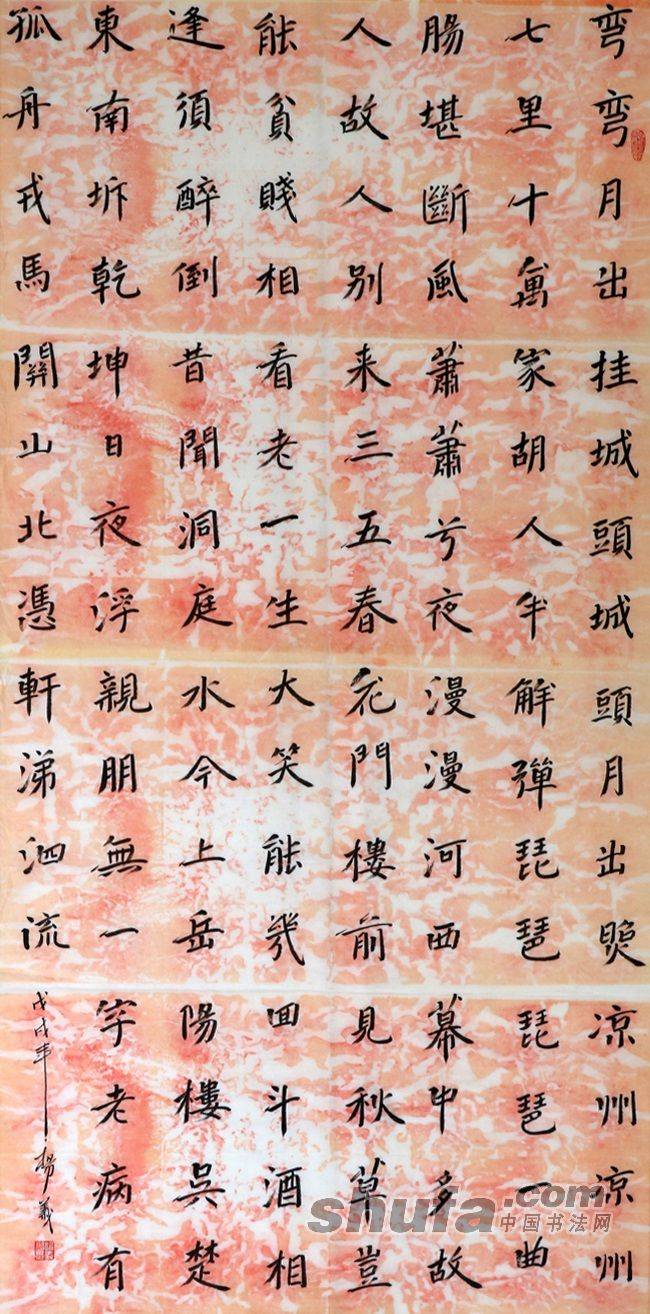 弯弯月出挂城頭城頭月出照凉州凉州
七里十萬家胡人半解彈琵琶琵琶一曲
腸堪斷風蕭蕭兮夜漫漫河西幕中多故
人故人别来三五春花門樓前見秋草豈
能貧賤相看老一生大笑能幾回斗酒相
逢須醉倒昔聞洞庭水今上岳陽樓吳楚
東南坼乾坤日夜浮親朋無一字老病有
孤舟戎馬關山北憑軒涕泗流
戊戌年 楊義
shufa.com
中国书法网